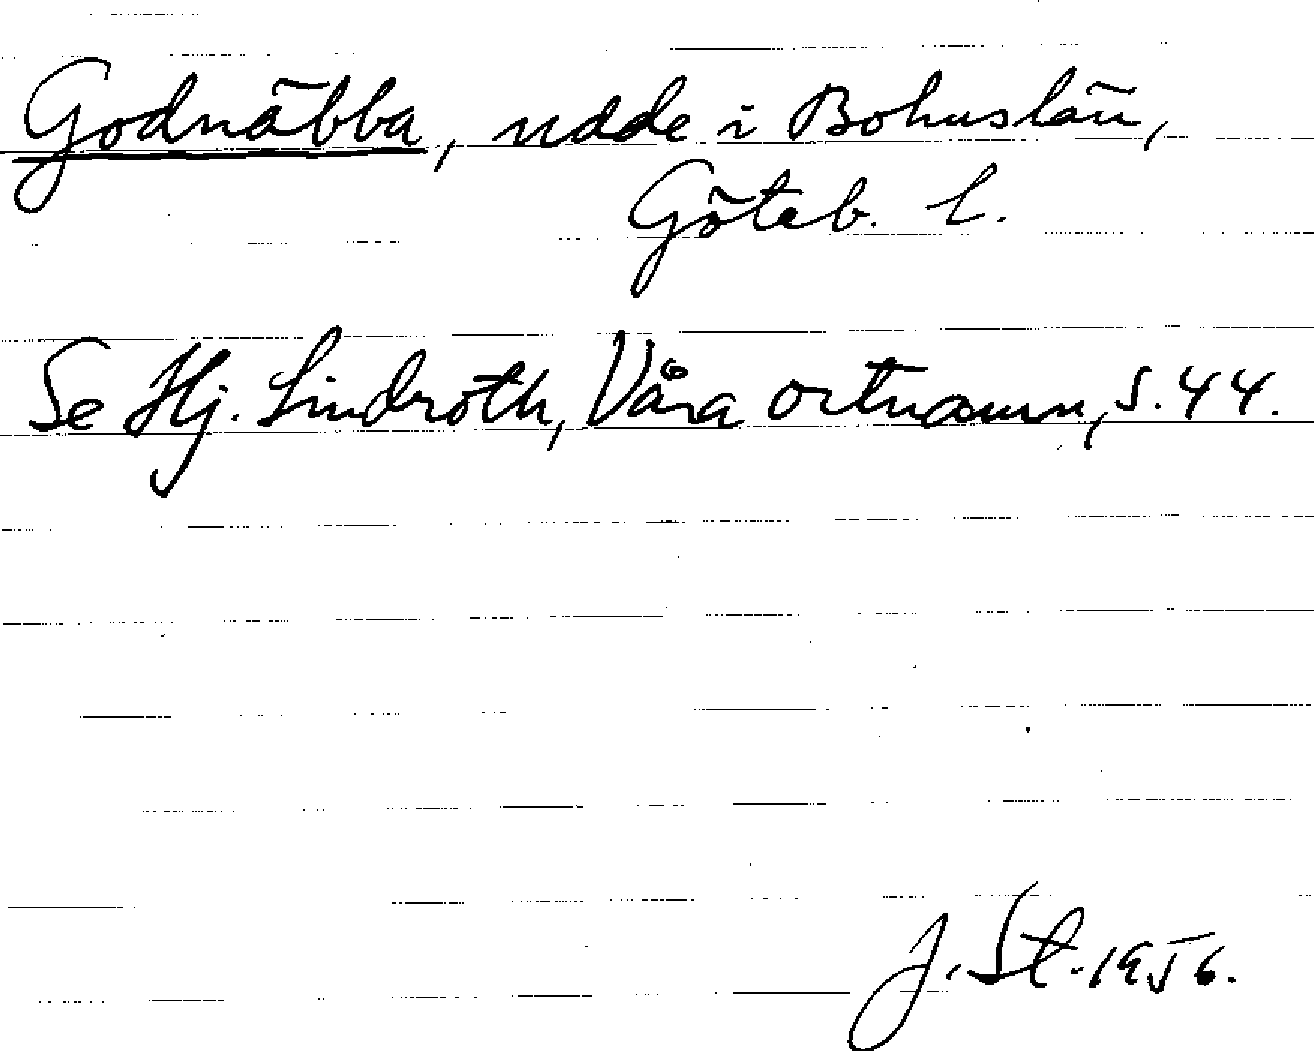 Godnäbba, udde i Bohuslän,
Göteb. l.
Se Hj. Lindroth, Våra ortnamn, s. 44.
J. St. 1956.